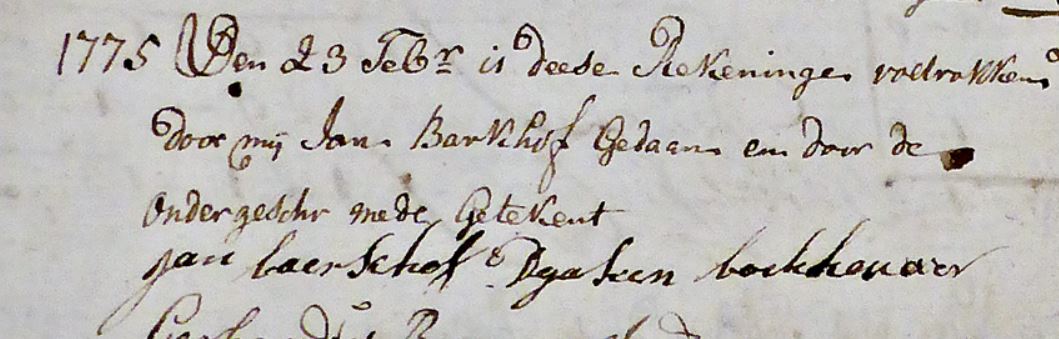 1775 Den 23 Febr is deese Rekeninge voeltrokken
door mij Jan Barkhof Gedaan en door de
ondergeschr mede Getekent
Jan baerschof boekhouder